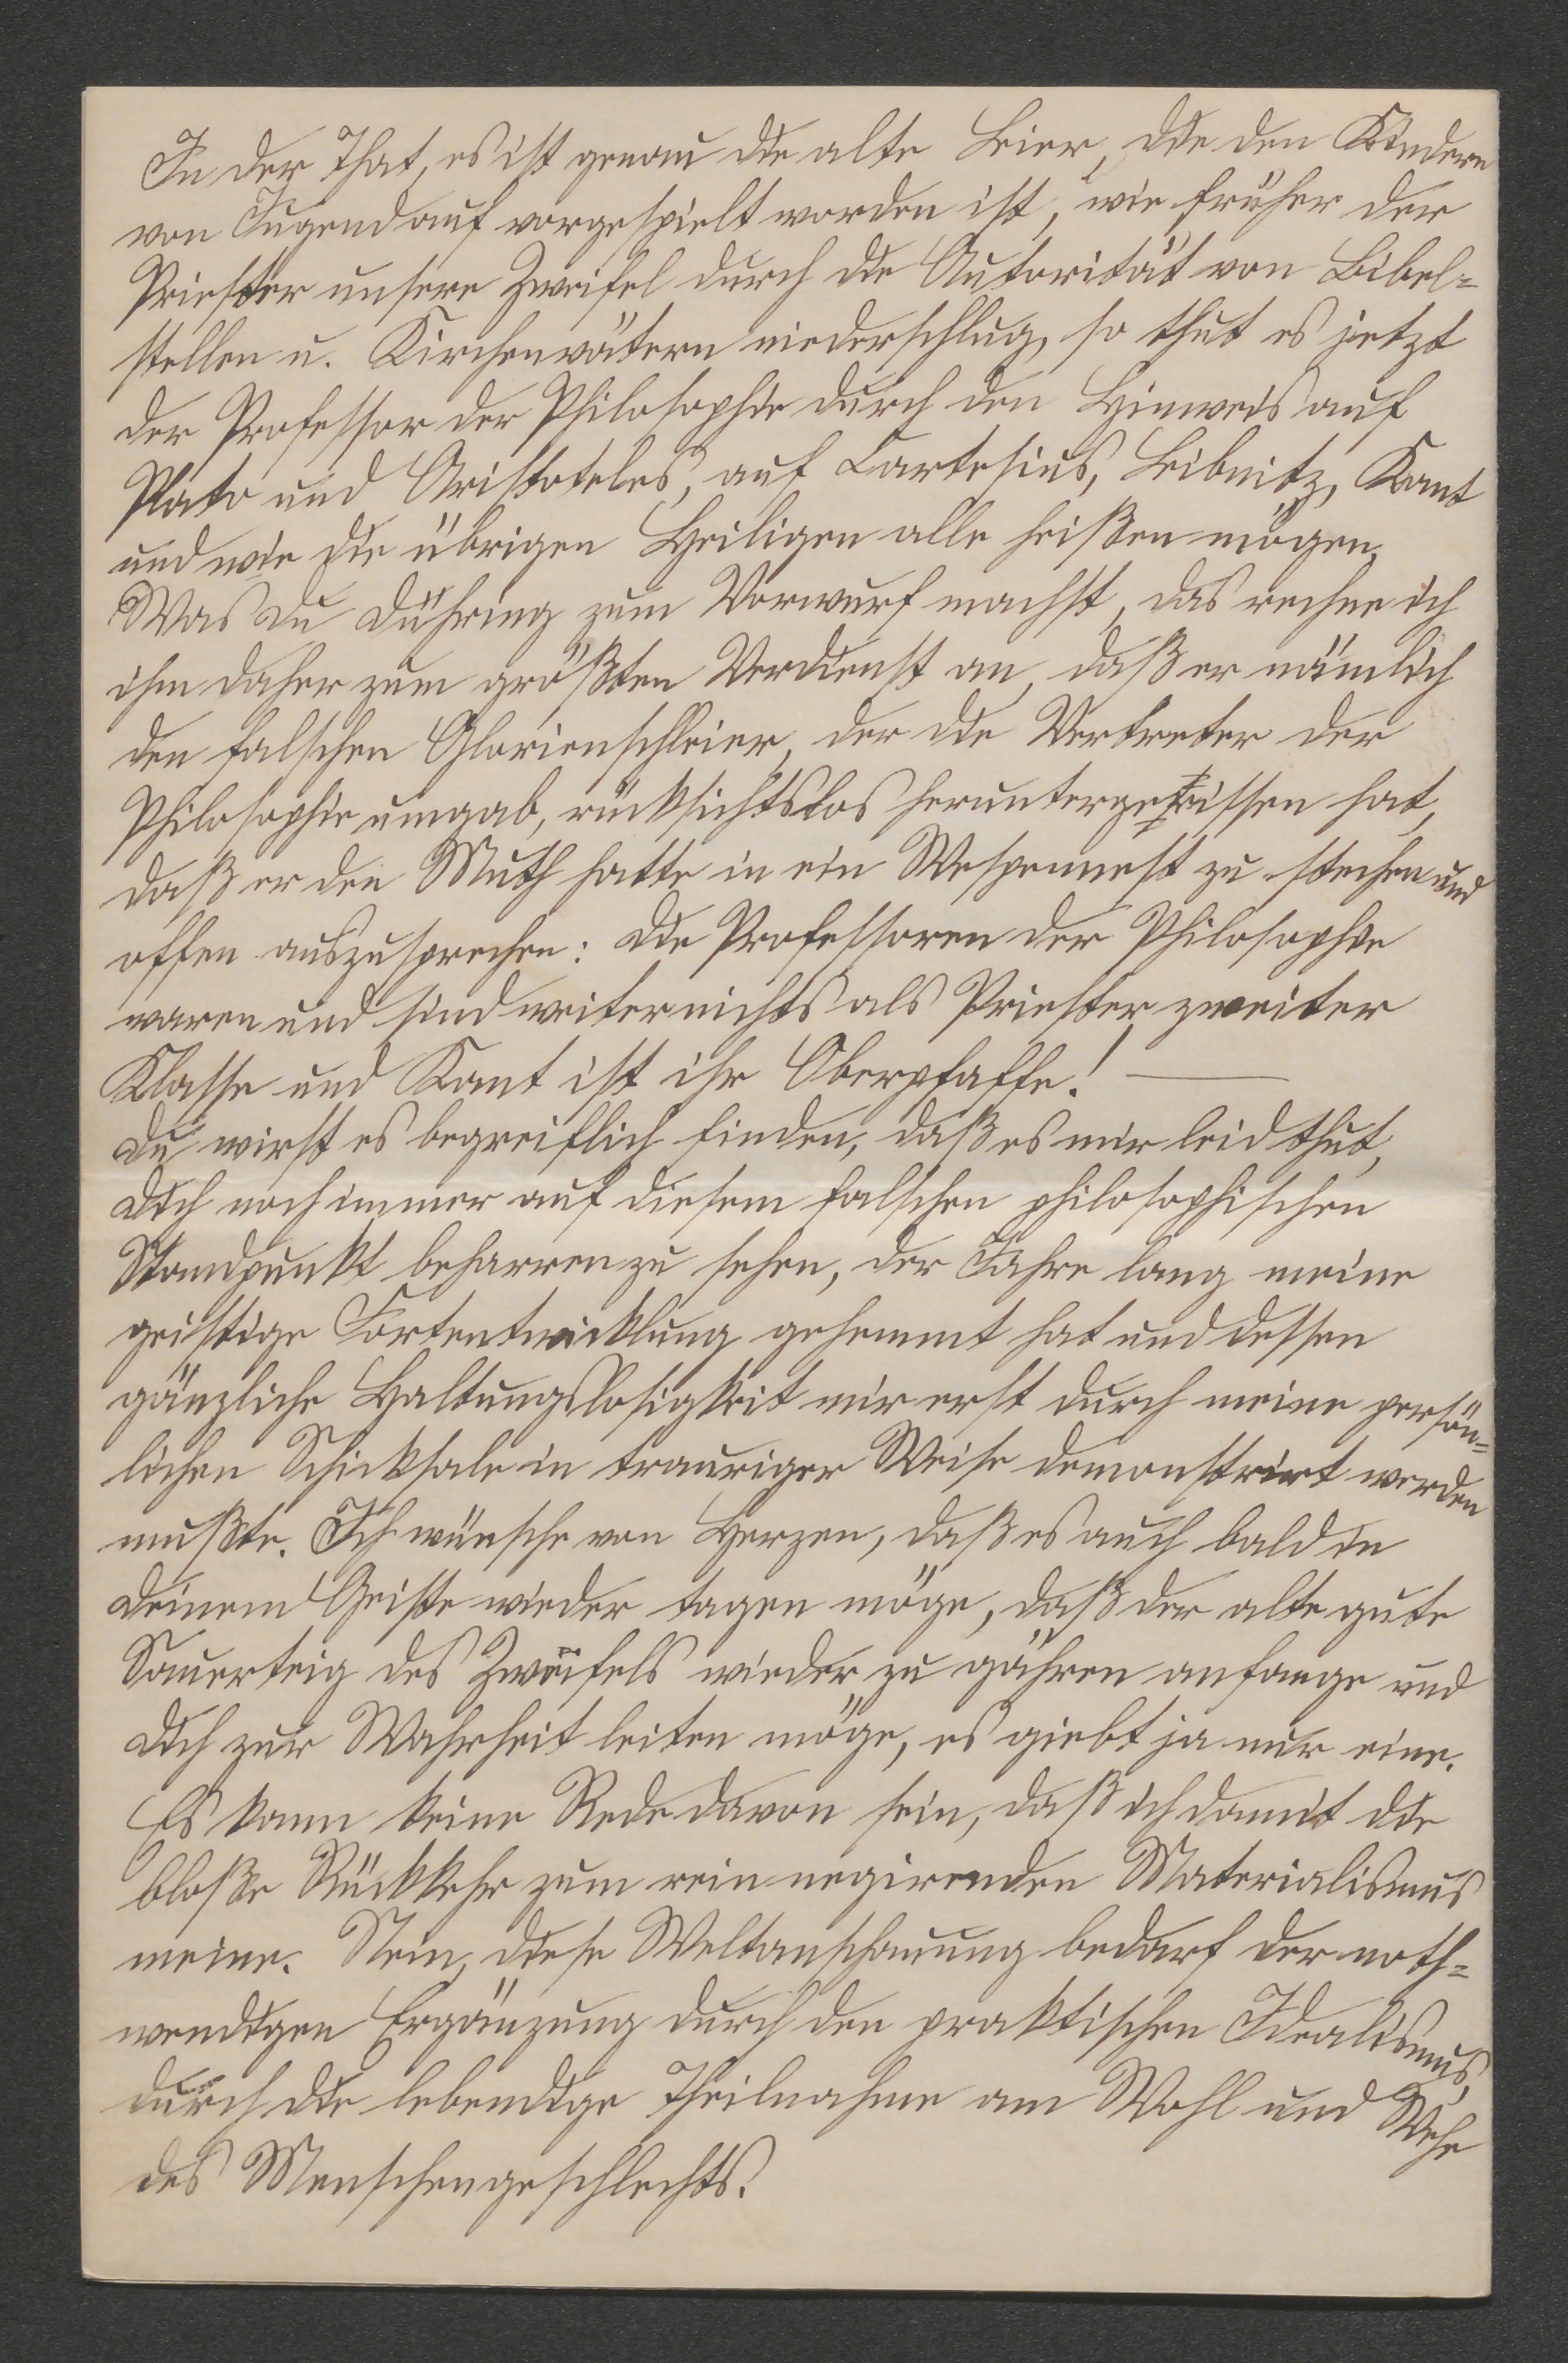 In der That, es ist genau die alte Leier, die den Kindern
von Jugend auf vorgespielt worden ist, wie früher der
Priester unsere Zweifel durch die Autorität von Bibel-
stellen u. Kirchenvätern niederschlug, so thut es jetzt
der Professor der Philosophie durch den Hinweis auf
Plato und Aristoteles, auf Cartesius, Leibnitz, Kant
und wie die übrigen Heiligen alle heißen mögen.
Was Du Dühring zum Vorwurf machst, das rechne ich
ihm daher zum größten Verdienst an, daß er nämlich
den falschen Glorienschleier, der die Vertreter der
Philosophie umgab, rücksichtslos heruntergerissen hat,
daß er den Muth hatte in ein Wespennest zu stechen und
offen auszusprechen: Die Professoren der Philosophie
waren und sind weiter nichts als Priester zweiter
Klasse und Kant ist ihr Oberpfaffe! —
Du wirst es begreiflich finden, daß es mir leid thut,
Dich noch immer auf diesem falschen philosophischen
Standpunkt beharren zu sehen, der Jahre lang meine
geistige Fortentwicklung gehemmt hat und dessen
gänzliche Haltungslosigkeit mir erst durch meine persön-
lichen Schicksale in trauriger Weise demonstrirt werden
mußte. Ich wünsche von Herzen, daß es auch bald in
Deinem Geiste wieder tagen möge, daß der alte gute
Sauerteig des Zweifels wieder zu gähren anfange und
Dich zur Wahrheit leiten möge, es giebt ja nur eine.
Es kann keine Rede davon sein, daß ich damit die
bloße Rückkehr zum rein negirenden Materialismus
meine. Nein, diese Weltanschauung bedarf der noth-
wendigen Ergänzung durch den praktischen Idealismus,
durch die lebendige Theilnahme am Wohl und Wehe
des Menschengeschlechts.